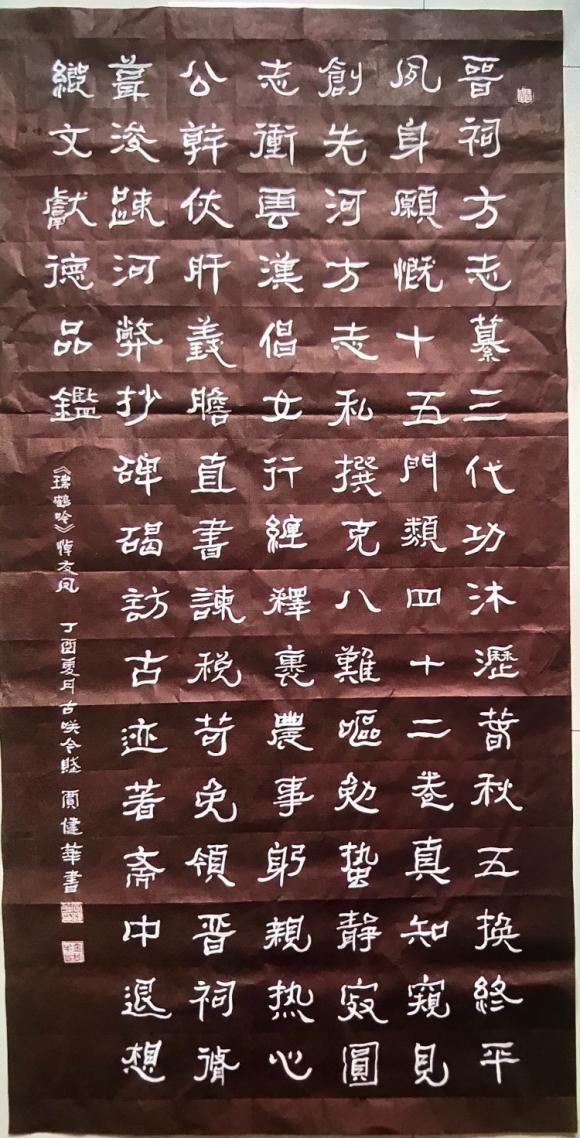 晉祠方志纂三代功沐瀝萅秋五换終平
夙身願慨十五門類四十二卷真知窺見
創先河方志私撰克八難嘔勉蟄靜寂圓
志衝雲漢倡女行纏釋裹農事躬親热心
公幹侠肝義膽直書諫税苛免領晋祠
葺浚踈河弊抄碑碣訪古迹著斋中退想
文獻德品鑑
《瑞鶴吟》悼友凤 丁酉夏月古 賈健華書